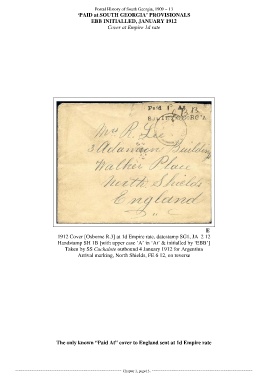 Postal History of South Georgia, 1909 – 13
'PAID at SOUTH GEORGIA' PROVISIONALS
EBB INITIALLED, JANUARY 1912
Cover at Empire 1d rate
Paid 1 At
Mrs. R. Lee
3 Building
Walker Place
North Shields
England
1912 Cover [Osborne R.3] at 1d Empire rate, datestamp SG1, JA 2 12
Handstamp SH 1B [with upper case 'A' in 'At' & initialled by 'EBB']
Taken by SS Cachalote outbound 4 January 1912 for Argentina
Arrival marking, North Shields, FE 6 12, on reverse
The only known "Paid At" cover to England sent at 1d Empire rate
Chapter 3, page 5